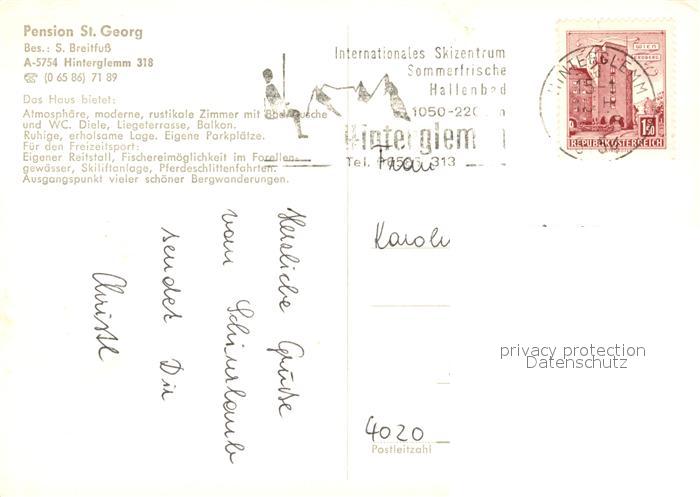 Pension St. Georg
Bes.: S. Breitfuß
A-5754 Hinterglemm 318
☎ (0 65 86) 71 89
Das Haus bietet:
Atmosphäre, moderne, rustikale Zimmer mit Badedusche
und WC. Diele, Liegeterrasse, Balkon.
Ruhige, erholsame Lage. Eigene Parkplätze.
Für den Freizeitsport:
Eigener Reitstall, Fischereimöglichkeit im Forellen-
gewässer, Skiliftanlage, Pferdeschlittenfahrten.
Ausgangspunkt vieler schöner Bergwanderungen.
Internationales Skizentrum
Sommerfrische
Hallenbad
1050-220 m
Hinterglemm
Tel. 313
HINTERGLEMM
WIEN
ERDBERG
1.50
REPUBLIK ÖSTERREICH
Herzliche Grüße
vom Schiurlaub
sendet Dir
Christl
Frau
Karol
privacy protection
Datenschutz
4020
Postleitzahl